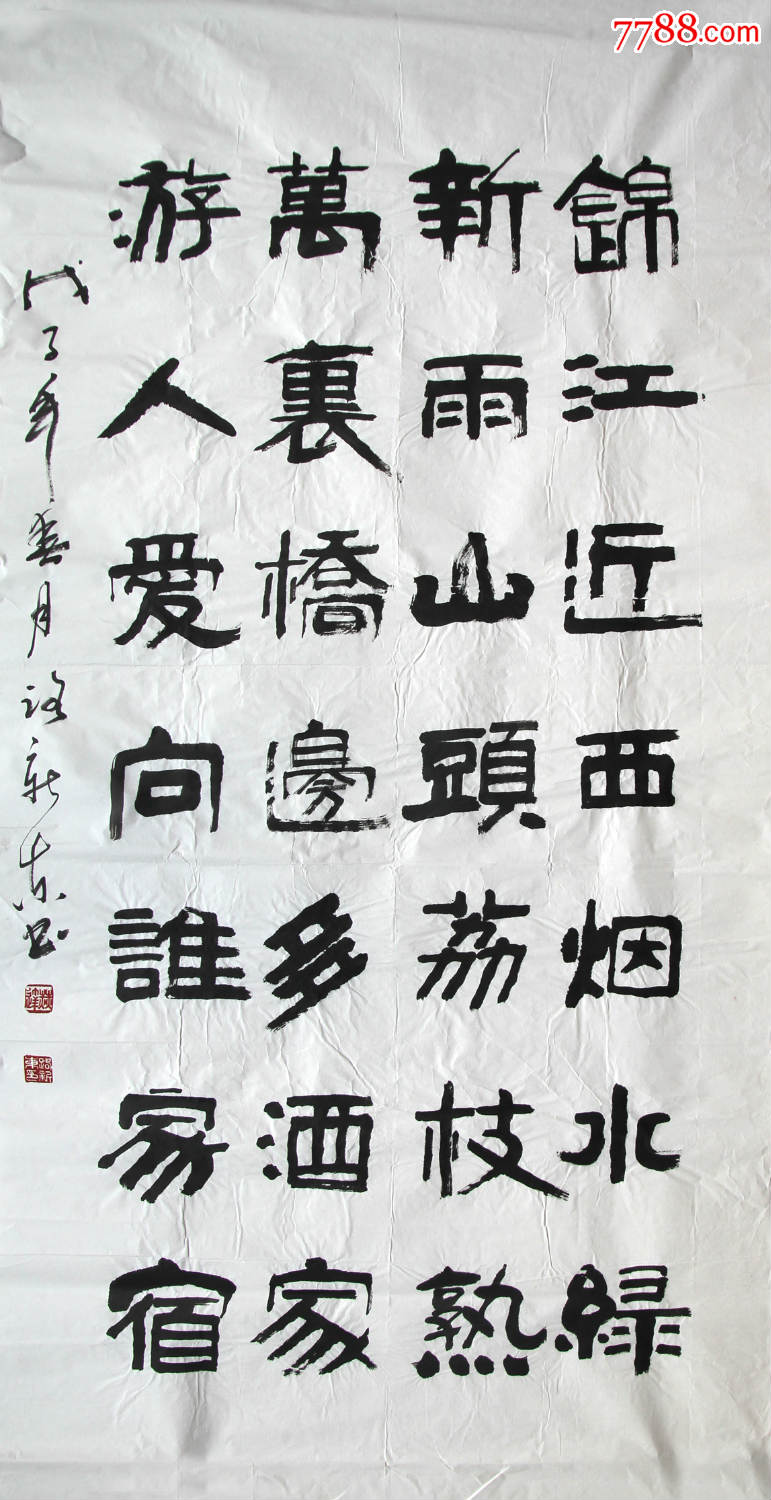 7788.com
錦江近西烟水緑
新雨山頭荔枝熟
萬裏橋邊多酒家
游人爱向誰家宿
戊子年春月路新东书